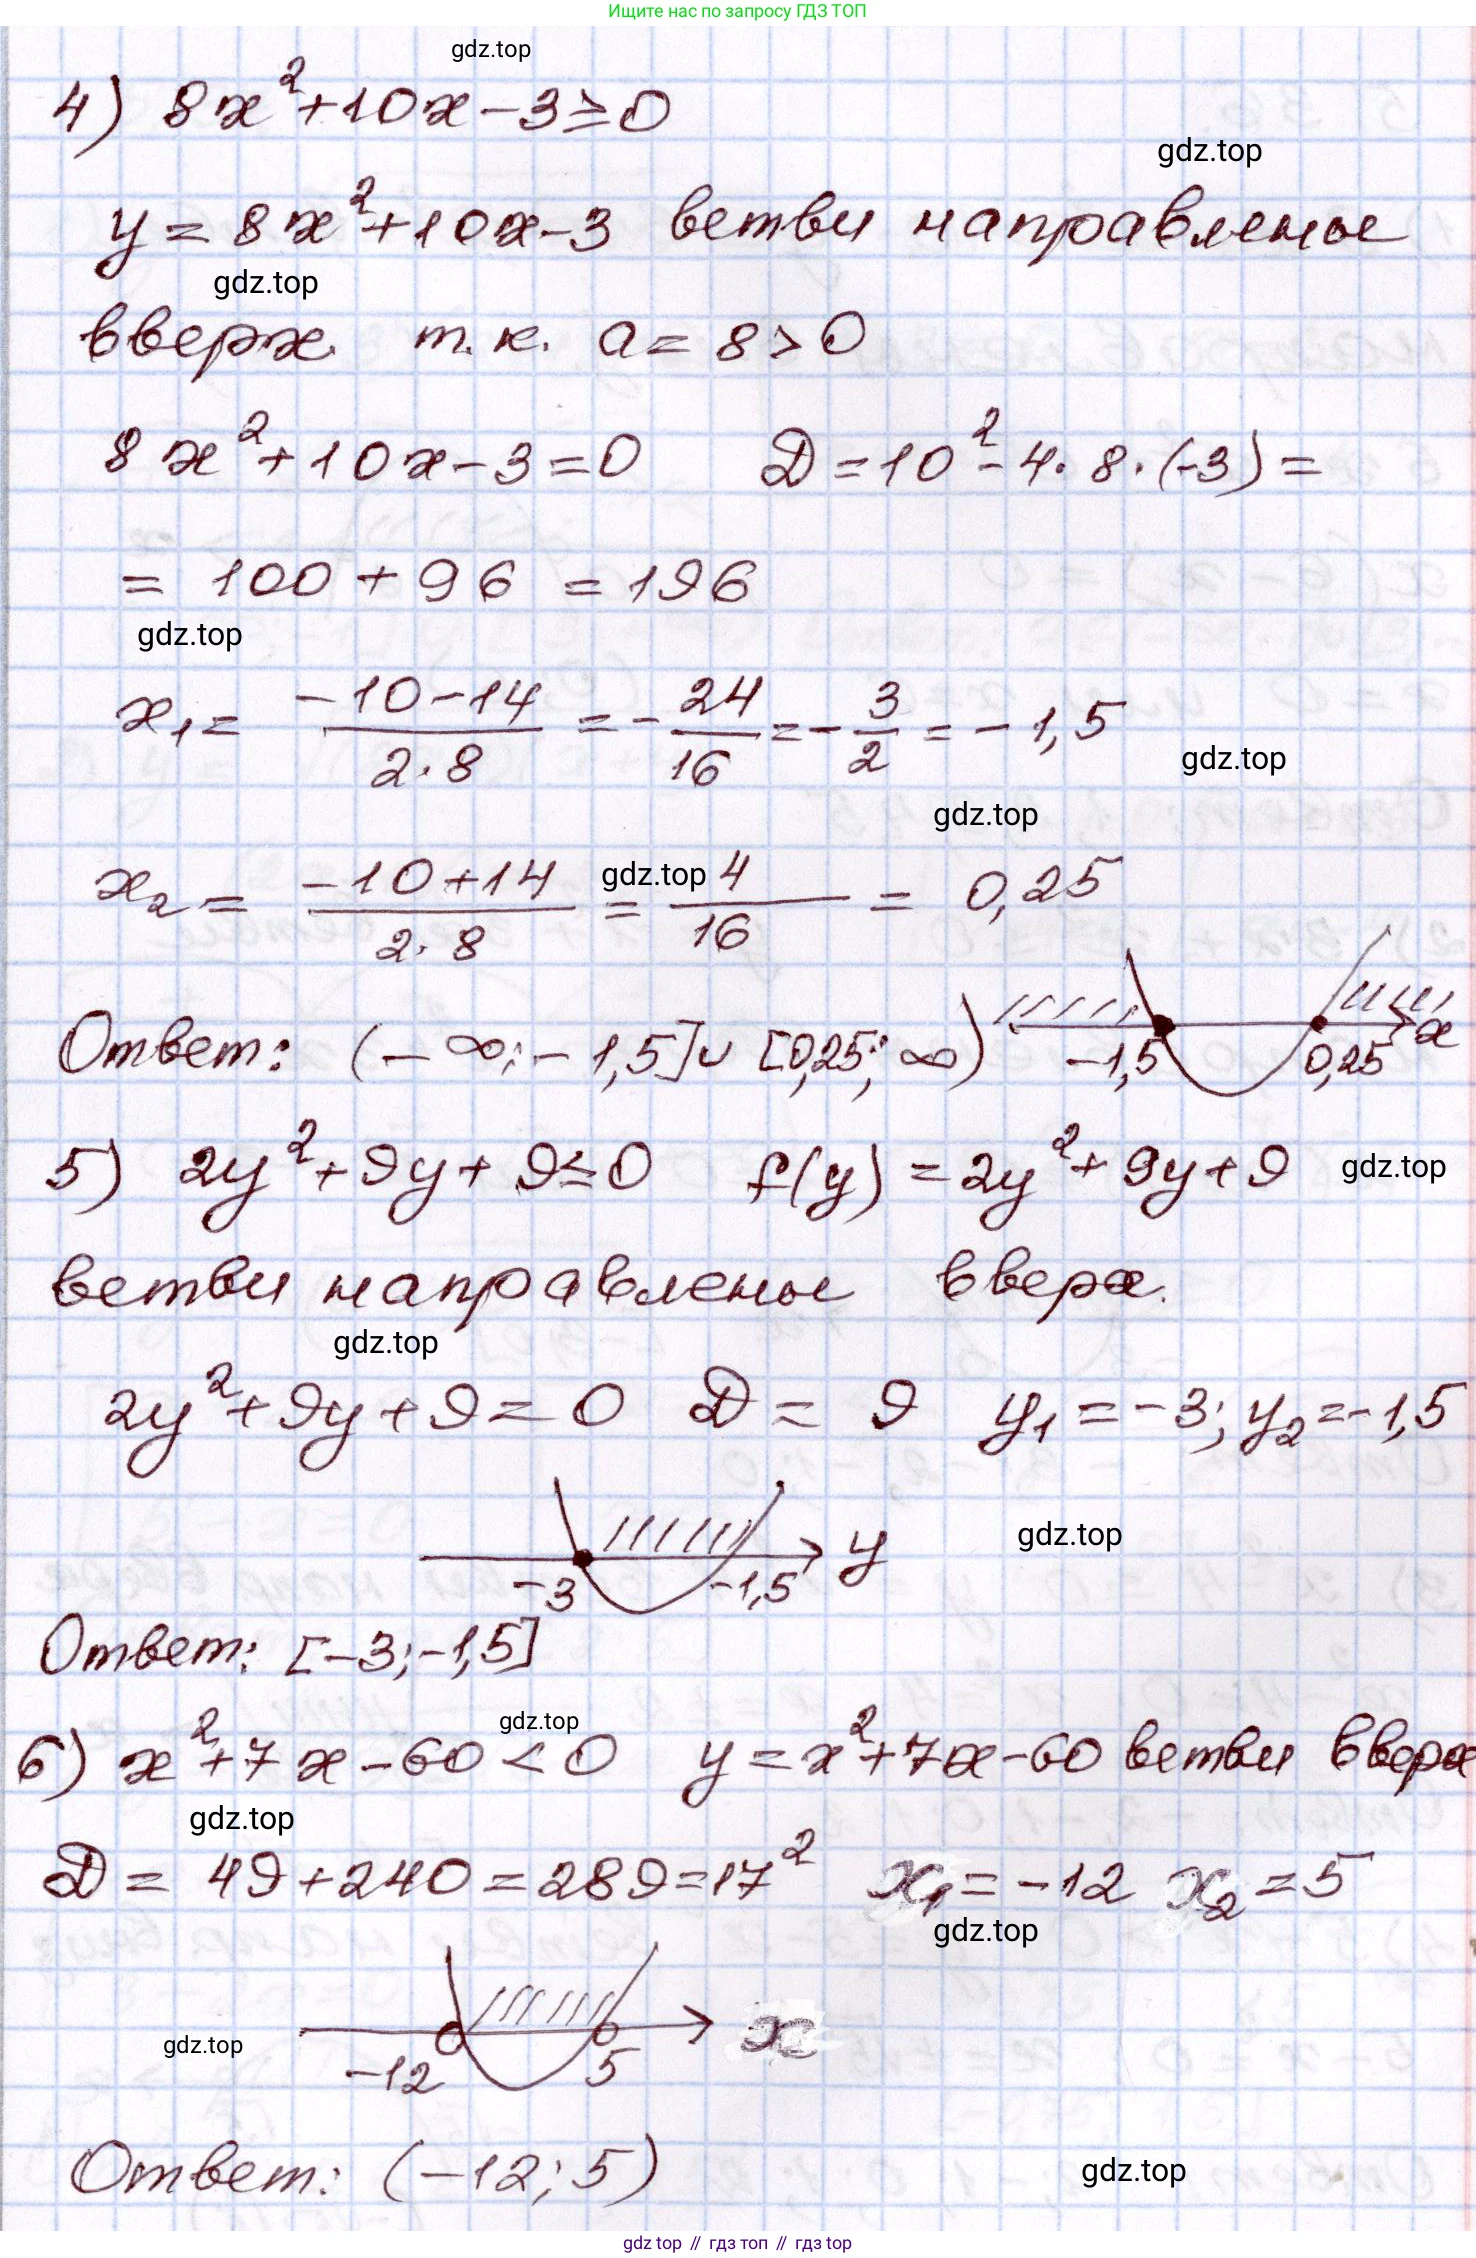 Ищите нас по запросу ГДЗ ТОП
gdz.top
4) 8x²+10x-3≥0
gdz.top
y=8x²+10x-3 ветви направлены
gdz.top
вверх т.к. a=8>0
8x²+10x-3=0 D=10²-4·8·(-3)=
=100+96=196
gdz.top
x₁= (-10-14)/(2·8) =-24/16=-3/2=-1,5
gdz.top
gdz.top
x₂= (-10+14)/(2·8) = 4/16 = 0,25
gdz.top
Ответ: (-∞;-1,5]∪[0,25;∞)
-1,5 0,25 x
5) 2y²+9y+9≤0 f(y)=2y²+9y+9
gdz.top
ветви направлены вверх.
gdz.top
2y²+9y+9=0 D=9 y₁=-3; y₂=-1,5
gdz.top
-3 -1,5 y
Ответ: [-3;-1,5]
gdz.top
6) x²+7x-60<0 y=x²+7x-60 ветви вверх
gdz.top
D=49+240=289=17² x₁=-12 x₂=5
gdz.top
gdz.top
-12 5 x
Ответ: (-12;5)
gdz.top
gdz top // гдз топ // gdz top